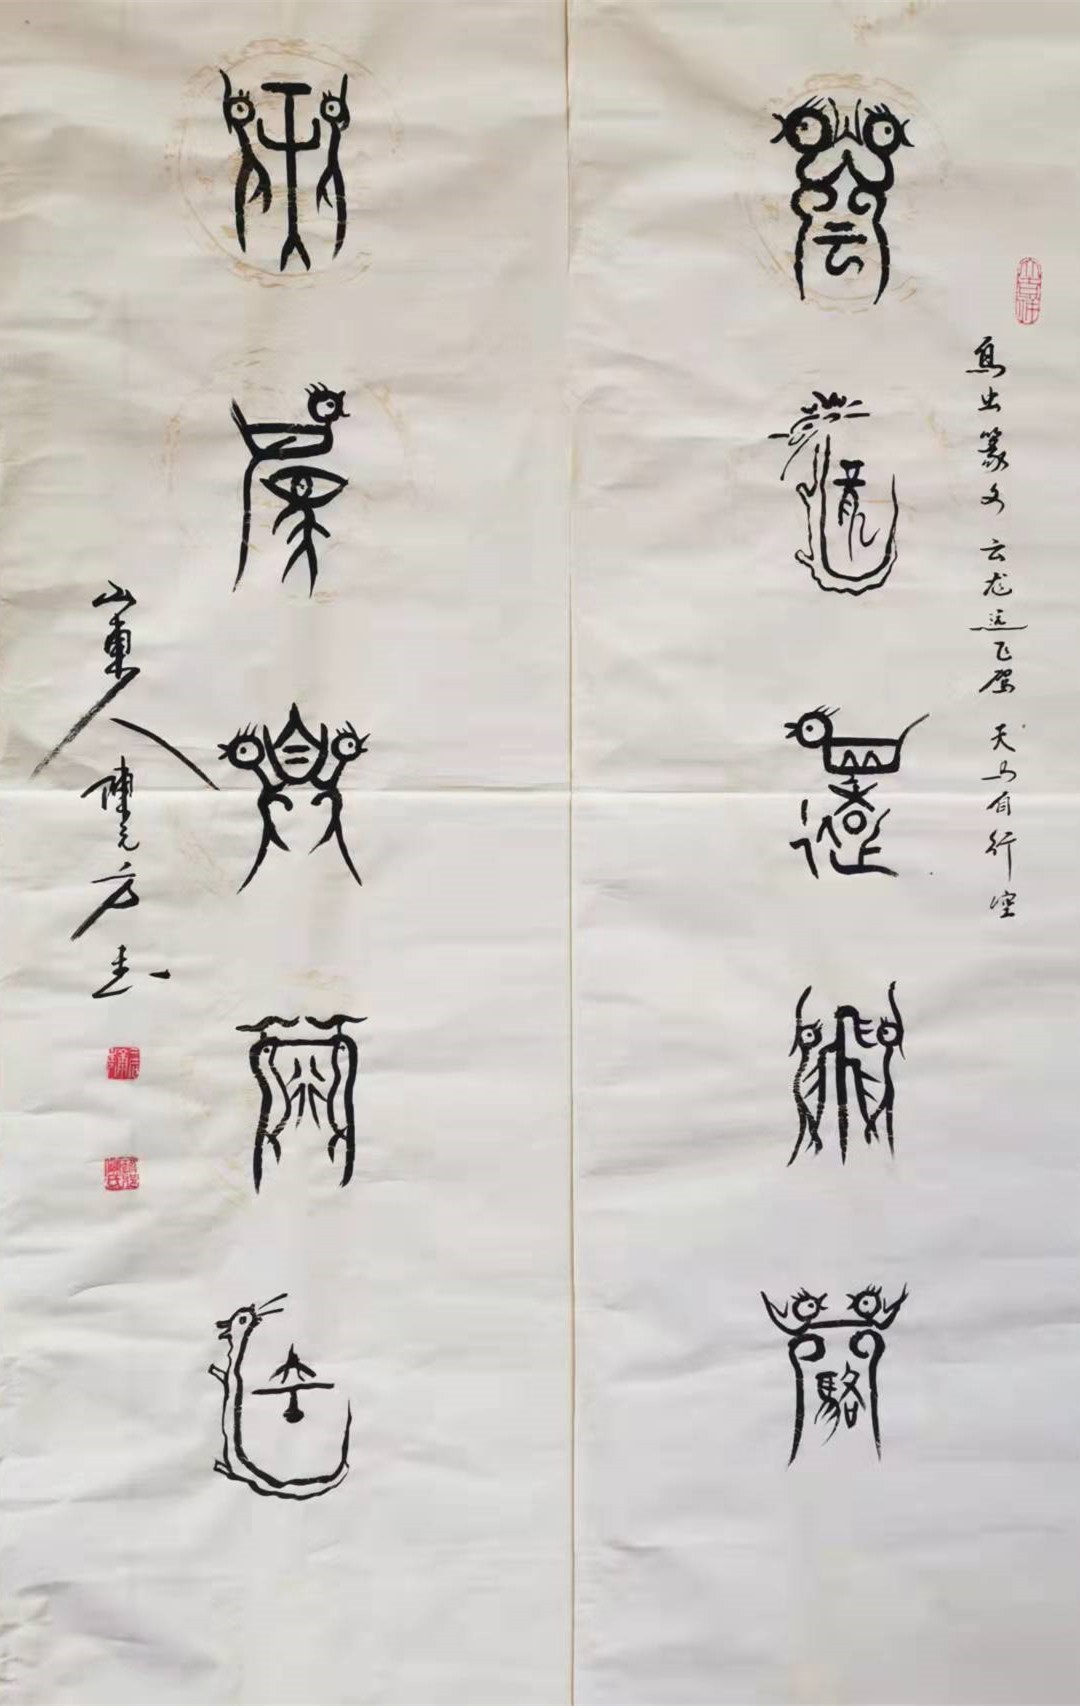 鳥虫篆文 云龙远飞驾 天马自行空
雲龍遠飛駕
天馬自行空
山東人 陳元方